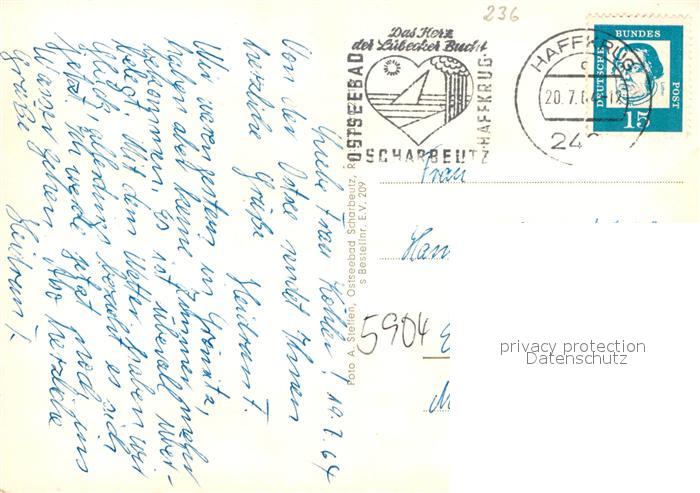 236
Das Herz
der Lübecker Bucht
OSTSEEBAD
SCHARBEUTZ
HAFFKRUG
HAFFKRUG
20.7.64
240
DEUTSCHE
BUNDES
POST
15
Foto A. Steffen, Ostseebad Scharbeutz,
Bestellnr. E.V. 209
Liebe Frau Köhler! 19.7.64
Von der Ostsee sendet Ihnen
herzliche Grüße Heidrun T.
Wir waren gestern in Grömitz,
haben aber keine Zimmer mehr
bekommen. Es ist überall über-
belegt. Mit dem Wetter haben wir
Glück, allerdings bezieht es sich
jetzt. Ich werde jetzt noch ins
Wasser gehen. Also herzliche
Grüße Heidrun T.
Frau
5904
privacy protection
Datenschutz